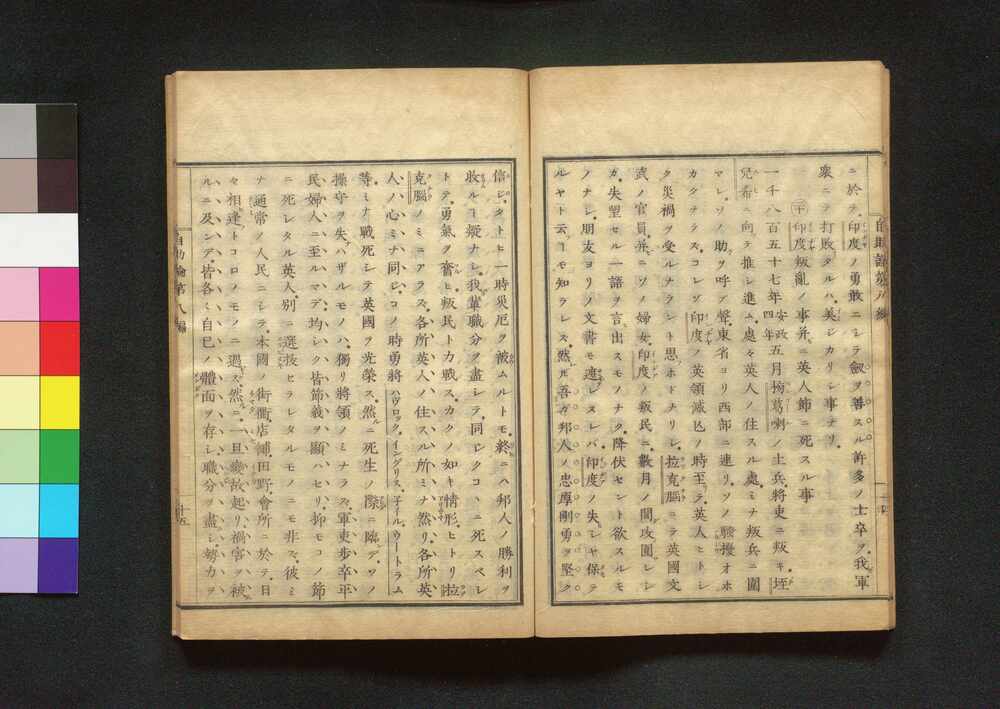 ニ於テ印度ノ勇敢ニシテ劔ヲ善スル許多ノ士卒ヲ我軍
衆ニテ打敗タルハ美シカリシ事ナリ
㊁十 印度叛亂ノ事并ニ英人節ニ死スル事
一千八百五十七年安政四年五月榜葛喇ノ土兵將吏ニ叛キ垤
兒希ニ向テ推シ進ム處々英人ノ住スル處ミナ叛兵ニ圍
マレソノ助ヲ呼ブ聲東省ヨリ西部ニ連リソノ騷擾オホ
カタナラスコレゾ印度ノ英領滅亡ノ時至ラ英人ヒトシ
ク災禍ヲ受ルナラント思ホドナリシ拉克腦ニテ英國文
武ノ官員并ニソノ婦女印度ノ叛民ニ數月ノ間攻圍レシ
ガ失望セル一語ヲ言出スモノナク降伏セント欲スルモ
ノナシ朋友ヨリノ文書モ達レヌレバ印度ノ失シヤ保テ
ルヤト云コモ知ラレス然ルニ吾ガ邦人ノ忠厚剛勇ヲ堅ク
信ジタトヒ一時災厄ヲ被ムルトモ終ニハ邦人ノ勝利ヲ
收ルコ疑ナシ我輩職分ヲ盡シテ同シクコヽニ死スベシ
トテ勇氣ヲ奮ヒ叛民ト力戰スカクノ如キ情形ヒトリ拉
克腦ノミニアラス各所英人ノ住スル所ミナ然リ各所英
人ノ心ミナ同シコノ時勇將ハヴロック、イングリス、子イル、ウートラム
等ミナ戰死シテ英國ヲ光榮ス然ニ死生ノ際ニ臨デソノ
操守ヲ失ハザルモノハ獨リ將領ノミナラス軍吏歩卒平
民婦人ニ至ルマデ均シク皆節義ヲ顯ハセリ抑モコノ節
ニ死レタル英人別ニ選拔ヒラレタルモノニモ非ス彼ミ
ナ通常ノ人民ニシテ本國ノ街衢店鋪田野會所ニ於テ日
々相逢トコロノモノニ過ス然ニ一旦變故起リ禍害ヲ被
ルニ及ンデ皆各ミ自己ノ體面ヲ存シ職分ヲ盡シ勢力ヲ
自助論第八編
十五